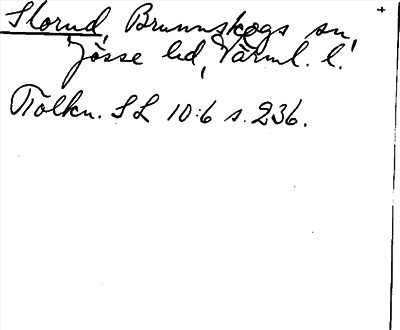 Slorud, Brunnskogs sn,
Jösse hd, Värml. l.
Tolkn. SL 10:6 s. 236.